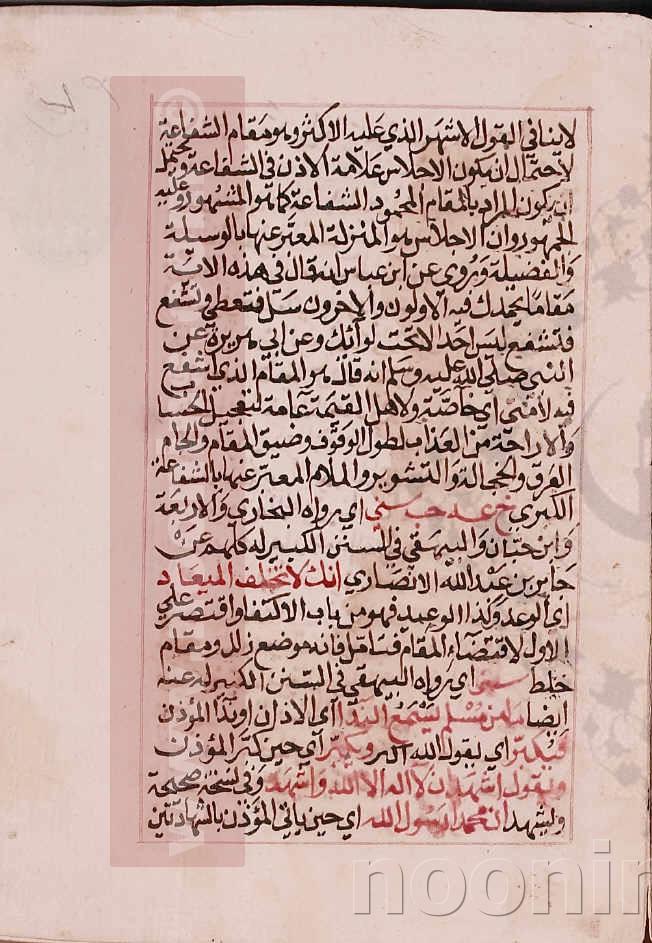 لا ينافي القول الاشهر الذي عليه الاكثر وهو مقام الشفاعة
لاحتمال ان يكون الاجلاس علامة الاذن في الشفاعة ويحتمل
ان يكون المراد بالمقام المحمود الشفاعة كما هو المشهور وعليه
الجمهور وان الاجلاس هو المنزلة المعبر عنها بالوسيلة
والفضيلة وروي عن ابن عباس انه قال في هذه الاية
مقاما يحمدك فيه الاولون والاخرون سل فتعطى وتشفع
فتشفع ليس احد الا تحت لوائك وعن ابي هريرة عن
النبي صلى الله عليه وسلم انه قال هو المقام الذي اشفع
فيه لامتي اي خاصية ولاهل القيمة عامة لتعجيل الحساب
والاراحة من العذاب لطول الوقوف وضيق المقام والجام
العرق والخجالة والتشوير والملام المعبر عنها بالشفاعة
الكبرى خ عه حب سني اي رواه البخاري والاربعة
وابن حبان والبيهقي في السنن الكبير له كلهم عن
جابر بن عبد الله الانصاري انك لا تخلف الميعاد
اي الوعد وكذا الوعيد فهو من باب الاكتفا واقتصر على
الاول لاقتضاء المقام فتامل فانه موضع زلل ومقام
خلط سني اي رواه البيهقي في السنن الكبير له عنه
ايضا ما من مسلم يسمع الندا اي الاذان او ندا المؤذن
فيكبر اي يقول الله اكبر ويكبر اي حين كبر المؤذن
ويقول اشهد ان لا اله الا الله واشهد وفي نسخة صحيحة
وليشهد ان محمدا رسول الله اي حين ياتي المؤذن بالشهادتين
noonin